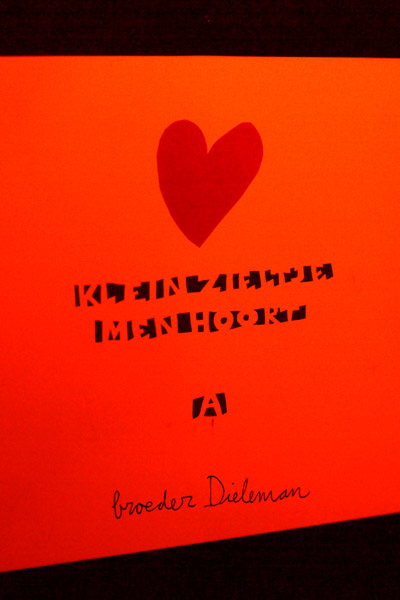 KLEIN ZIELTJE
MEN HOORT
A
broeder Dieleman